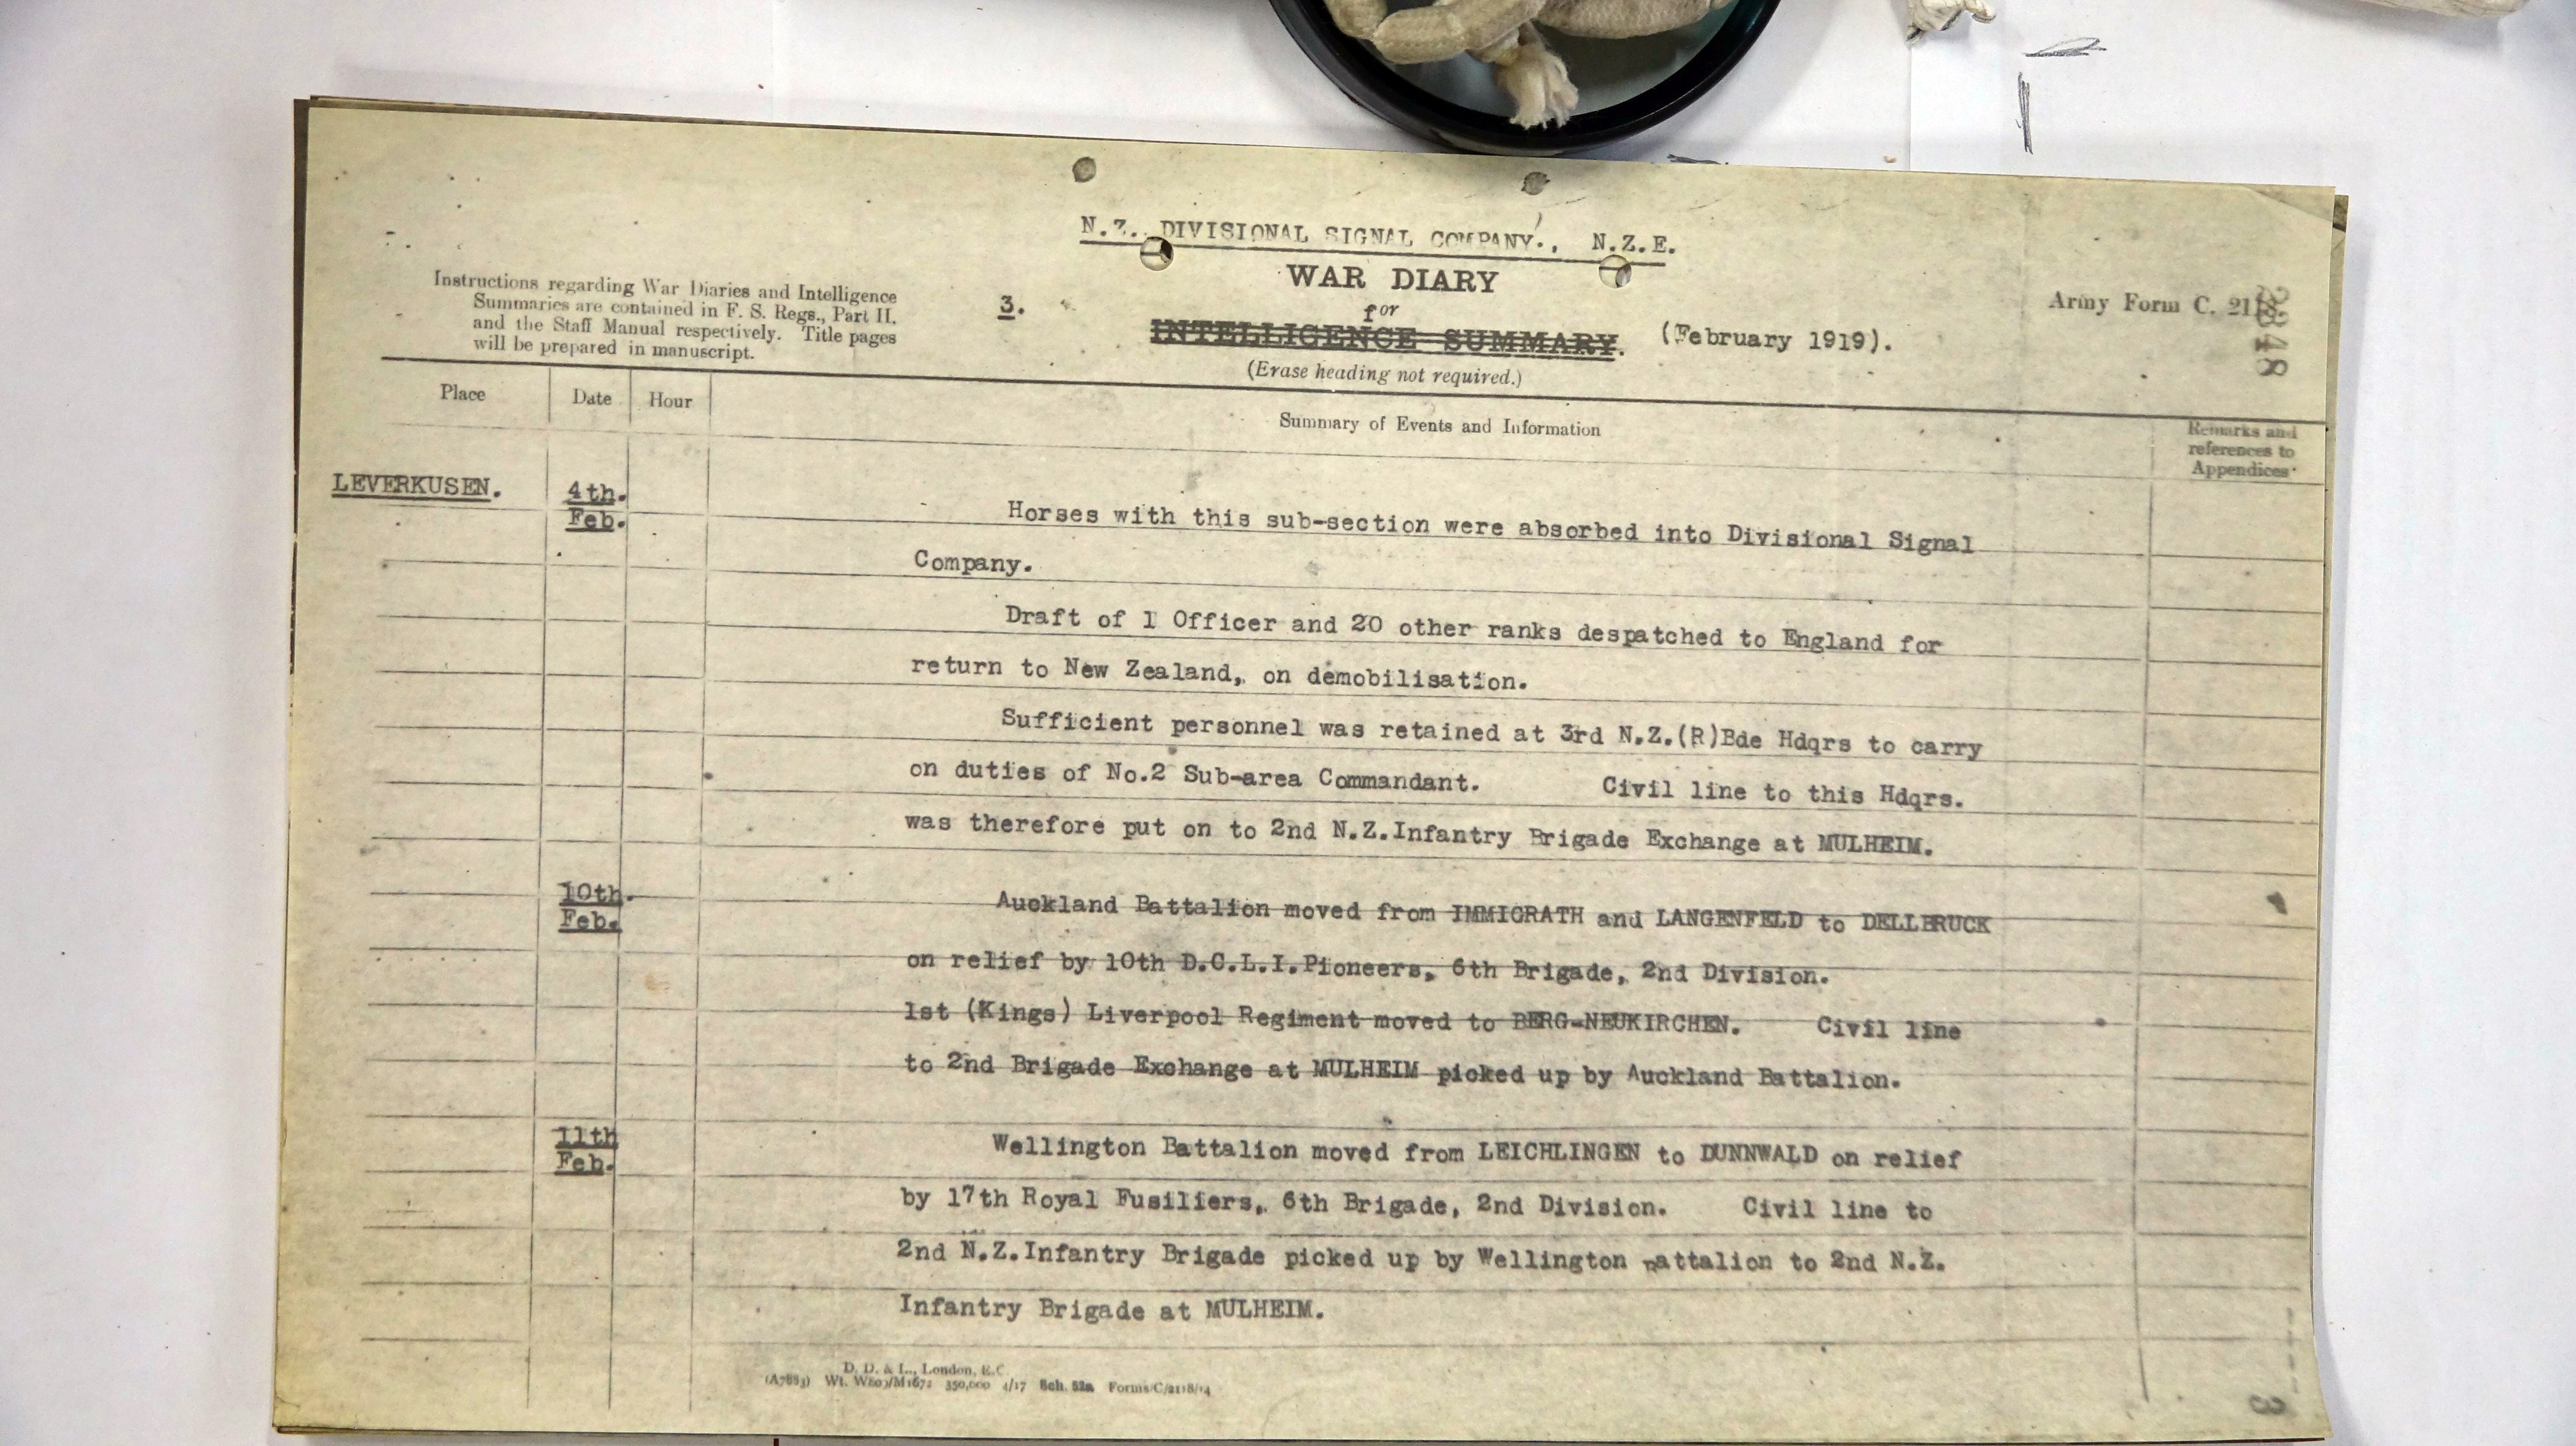 N.Z. DIVISIONAL SIGNAL COMPANY., N.Z.E.
WAR DIARY
for
INTELLIGENCE SUMMARY. (February 1919).
(Erase heading not required.)
Instructions regarding War Diaries and Intelligence
Summaries are contained in F. S. Regs., Part II.
and the Staff Manual respectively. Title pages
will be prepared in manuscript.
3.
Army Form C. 2118.
Place
Date
Hour
Summary of Events and Information
Remarks and
references to
Appendices
LEVERKUSEN.
4th.
Feb.
Horses with this sub-section were absorbed into Divisional Signal
Company.
Draft of 1 Officer and 20 other ranks despatched to England for
return to New Zealand, on demobilisation.
Sufficient personnel was retained at 3rd N.Z.(R)Bde Hdqrs to carry
on duties of No.2 Sub-area Commandant. Civil line to this Hdqrs.
was therefore put on to 2nd N.Z.Infantry Brigade Exchange at MULHEIM.
10th.
Feb.
Auckland Battalion moved from IMMIGRATH and LANGENFELD to DELLBRUCK
on relief by 10th D.C.L.I.Pioneers, 6th Brigade, 2nd Division.
1st (Kings) Liverpool Regiment moved to BERG-NEUKIRCHEN. Civil line
to 2nd Brigade Exchange at MULHEIM picked up by Auckland Battalion.
11th
Feb.
Wellington Battalion moved from LEICHLINGEN to DUNNWALD on relief
by 17th Royal Fusiliers, 6th Brigade, 2nd Division. Civil line to
2nd N.Z.Infantry Brigade picked up by Wellington Battalion to 2nd N.Z.
Infantry Brigade at MULHEIM.
D. D. & L., London, E.C.
(A7883) Wt. W809/M1672 350,000 4/17 Sch. 52a Forms/C/2118/14
3